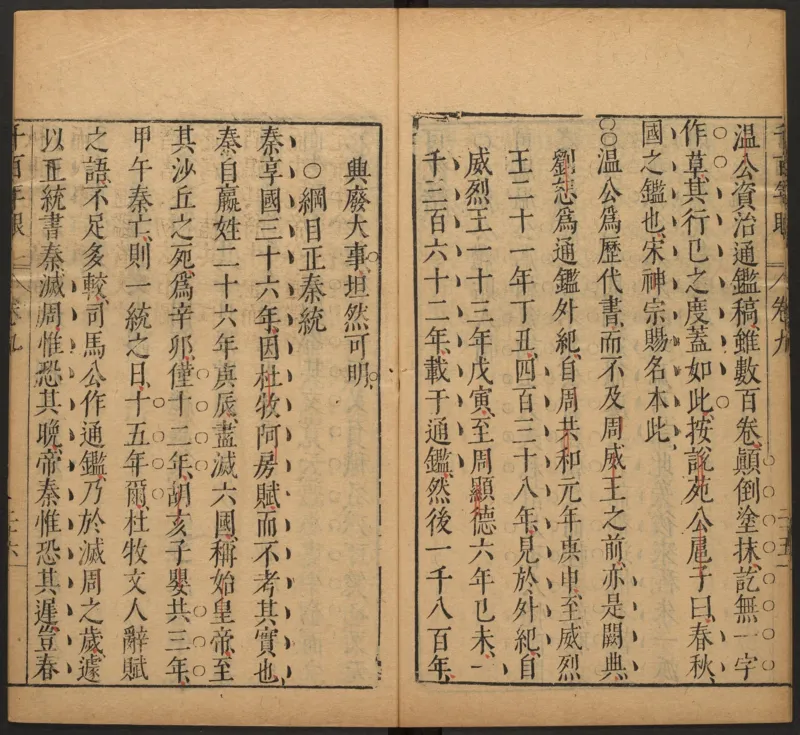 溫公資治通鑑稿雖數百卷顛倒塗抹訖無一字
作草其行已之度蓋如此按說苑公扈子曰春秋
國之鑑也宋神宗賜名本此
○溫公爲歷代書而不及周威王之前亦是闕典
劉恕爲通鑑外紀自周共和元年庚申至威烈
王二十一年丁丑四百三十八年見於外紀自
威烈王一十三年戊寅至周顯德六年已未一
千三百六十二年載于通鑑然後一千八百年
興廢大事坦然可明
○綱目正秦統
秦享國三十六年因杜牧阿房賦而不考其實也
秦自嬴姓二十六年庚辰蓋滅六國稱始皇帝至
其沙丘之死爲辛卯僅十二年胡亥子嬰共三年
甲午秦亡則一統之日十五年爾杜牧文人辭賦
之語不足多較司馬公作通鑑乃於滅周之歲遽
以正統書秦滅周惟恐其晩帝秦惟恐其遲豈春
千百年眼
卷九